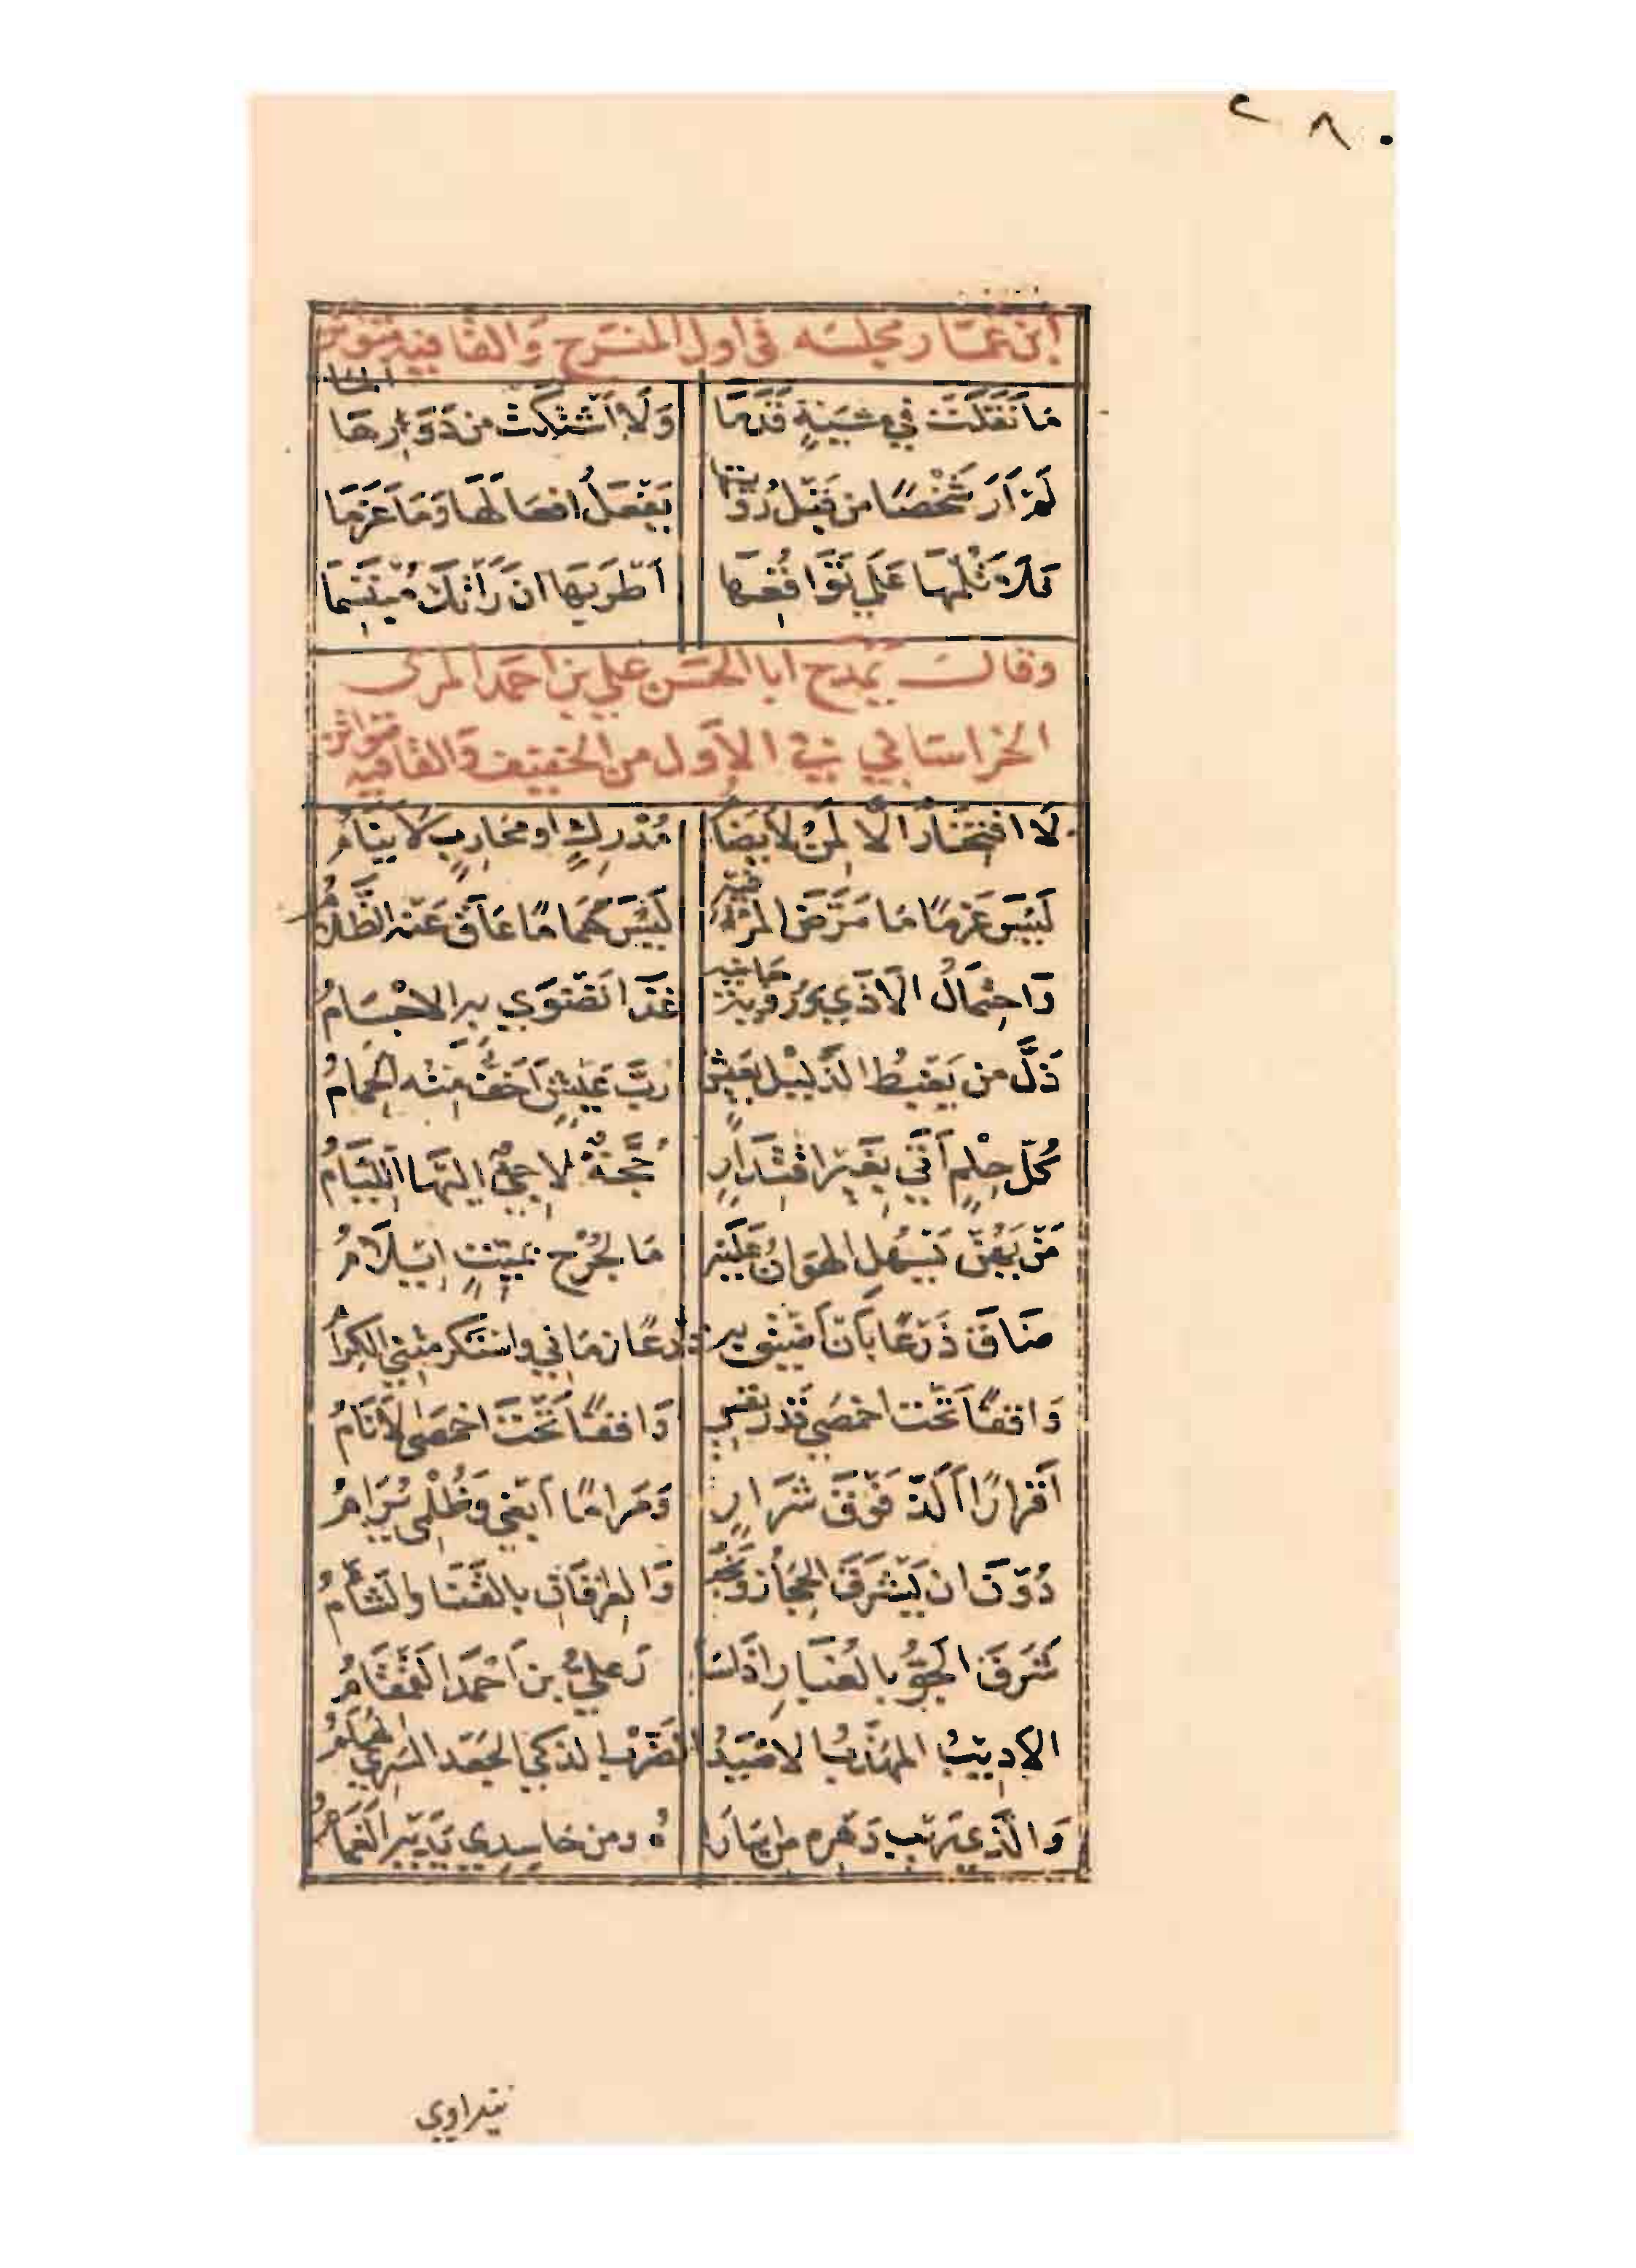 ٢٨٠
ابن عمّار مجلسه في اول المنسرح والقافية متواتر
مَا نَقَلَتْ فِي مشيَّةٍ قَدَمَا وَلَا اشْتَكَتْ من دَوَارِهَا المَا
لَمْ اَرَ شَخْصًا من قَبْلِ رُؤْيتها يَفْعَلُ افعَالَهَا وَمَا عَزَمَا
فَلَا تَلُمْهَا عَلَى تَوَاقُعِهَا اَطْرَبَهَا ان رَأَتْكَ مُبْتَسِمَا
وقال يمدح ابا الحَسَن علي بن احمد المرى
الخراساني في الأول من الخفيف والقافيه متواتر
لَا افْتِخَارٌ الَّا لِمَنْ لَا يُضَامُ مُدْرِكٍ او مُحَارِبٍ لَا يَنَامُ
لَيْسَ عَزمًا مَا مَرَّضَ المرْءُ فيه لَيْسَ هَمًّا مَا عَاقَ عَنْه الظَّلَامُ
وَاحْتِمَالُ الْاَذَي وَرُؤْيَة جَانيه غذَا تَضْوَي به الاجْسَامُ
ذَلَّ من يَغْبِطُ الذَّلِيْل بعَيْشٍ رُبَّ عَيْشٍ اَخَفُّ مِنْه الحِمَامُ
كُلُّ حِلْمٍ اَتَي بِغَيْر اقْتِدَارٍ حُجَّةٌ لَاجِئٌ اليْهَا اللِّئَامُ
مَنْ يَهُنْ يَسْهُل الهَوَانُ عَلَيْه مَا لِجُرْحٍ بِمَيِّتٍ اِيْلَامُ
ضَاقَ ذَرْعًا بَأن اَضِيْقَ بِه ذَرْعًا زمَاني واستكرمتني الكِرَامُ
وَاقفًا تَحْتَ اخمَصَي قَدر نفسي وَاقفًا تَحْتَ اخمَصَيَّ الْاَنَامُ
اَقَرارًا اَلَذُّ فَوْقَ شَرَارٍ وَمَرامًا اَبغي وَظُلْمِي يُرَامُ
دُوْنَ ان يَشْرَقَ الحِجَازُ وَنجْد وَالعِرَاقَانِ بالقَنَا والشَّامُ
شَرَقَ الجَوِّ بالغُبَارِ اِذَا سَا رَ عليُّ بن اَحْمَدَ القَمْقَامُ
الاديْبُ المهَذَّبُ الاصْيَدُ الضَّرْبُ الذكيُّ الجَعْد السَّرِيُّ الهُمَامُ
وَالَّذِي رَيْبُ دَهْرِه من اُسَارَا هُ ومن حَاسِدِي يَدَيْهِ الغَمَامُ
يتداوي